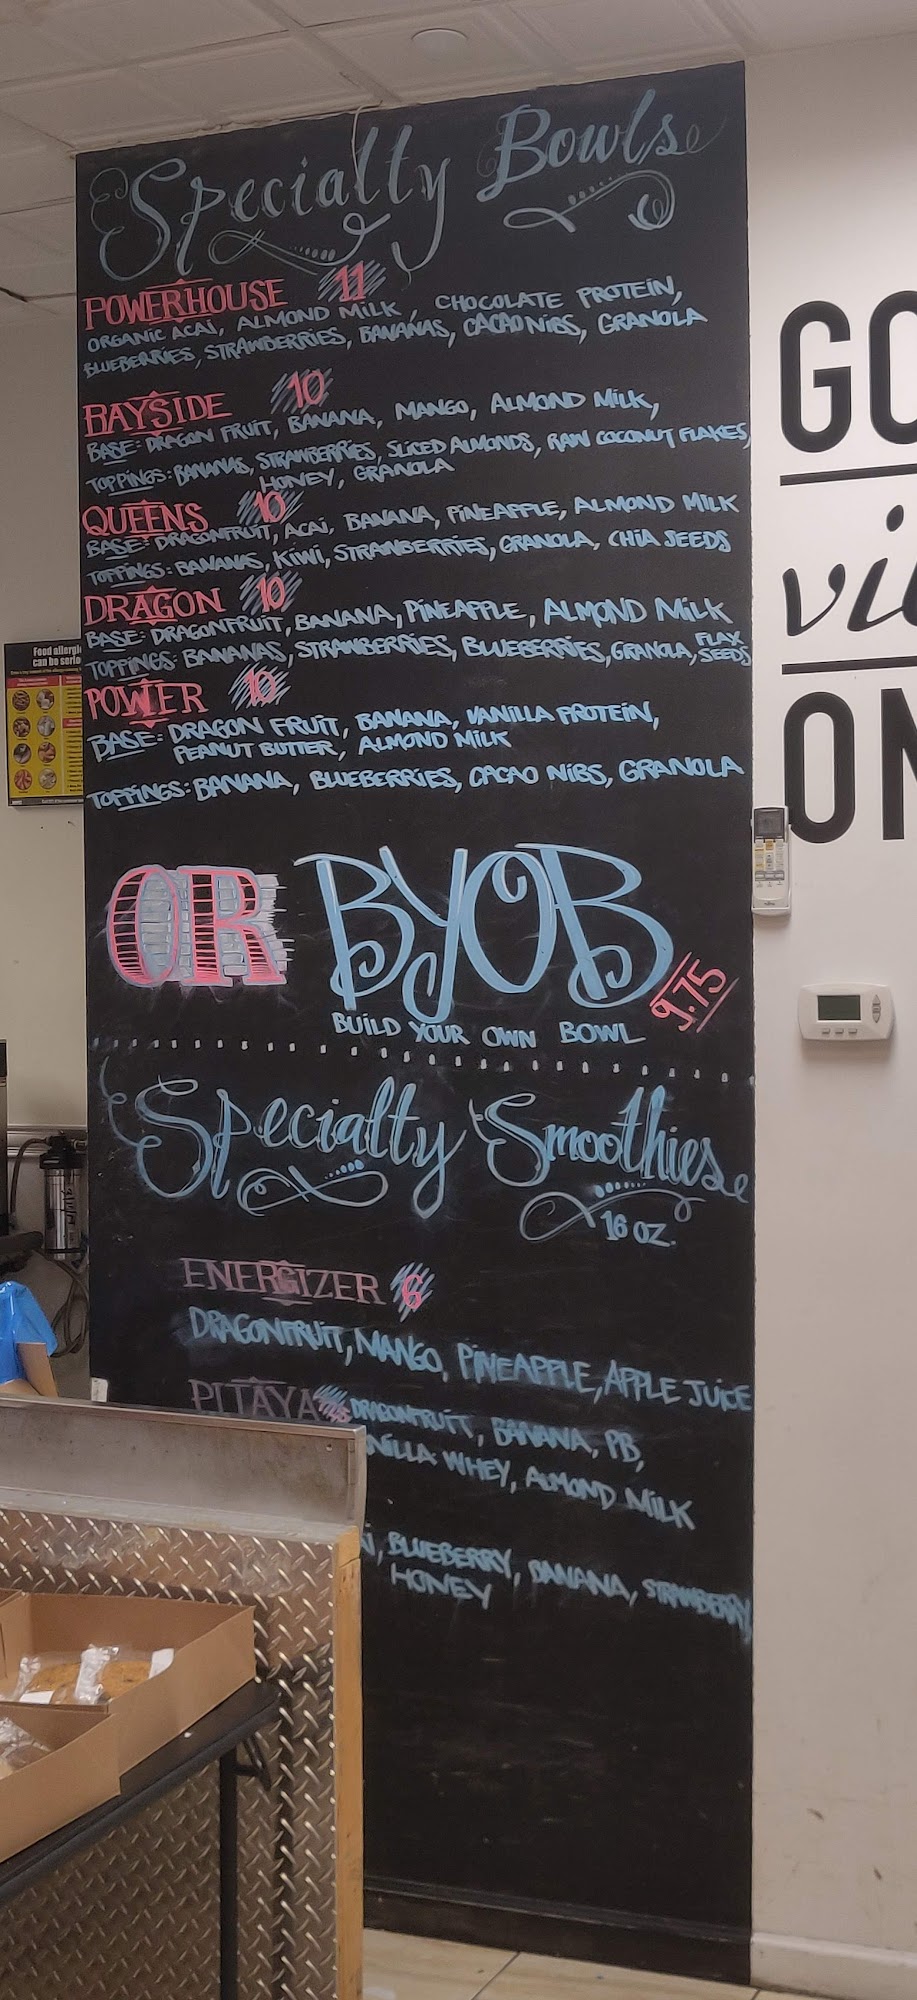 Specialty Bowls
POWERHOUSE 11
ORGANIC ACAI, ALMOND MILK, CHOCOLATE PROTEIN,
BLUEBERRIES, STRAWBERRIES, BANANAS, CACAO NIBS, GRANOLA
BAYSIDE 10
BASE: DRAGON FRUIT, BANANA, MANGO, ALMOND MILK,
TOPPINGS: BANANAS, STRAWBERRIES, SLICED ALMONDS, RAW COCONUT FLAKES,
HONEY, GRANOLA
QUEENS 10
BASE: DRAGONFRUIT, ACAI, BANANA, PINEAPPLE, ALMOND MILK
TOPPINGS: BANANAS, KIWI, STRAWBERRIES, GRANOLA, CHIA SEEDS
DRAGON 10
BASE: DRAGONFRUIT, BANANA, PINEAPPLE, ALMOND MILK
TOPPINGS: BANANAS, STRAWBERRIES, BLUEBERRIES, GRANOLA, FLAX SEEDS
POWER 10
BASE: DRAGON FRUIT, BANANA, VANILLA PROTEIN,
PEANUT BUTTER, ALMOND MILK
TOPPINGS: BANANA, BLUEBERRIES, CACAO NIBS, GRANOLA
OR BYOB 9.75
BUILD YOUR OWN BOWL
Specialty Smoothies
16 OZ.
ENERGIZER 6
DRAGONFRUIT, MANGO, PINEAPPLE, APPLE JUICE
PITAYA DRAGONFRUIT, BANANA, PB,
NILLA WHEY, ALMOND MILK
I, BLUEBERRY, BANANA, STRAWBERRY,
HONEY
GO
vi
ON
Food allergi
can be serio